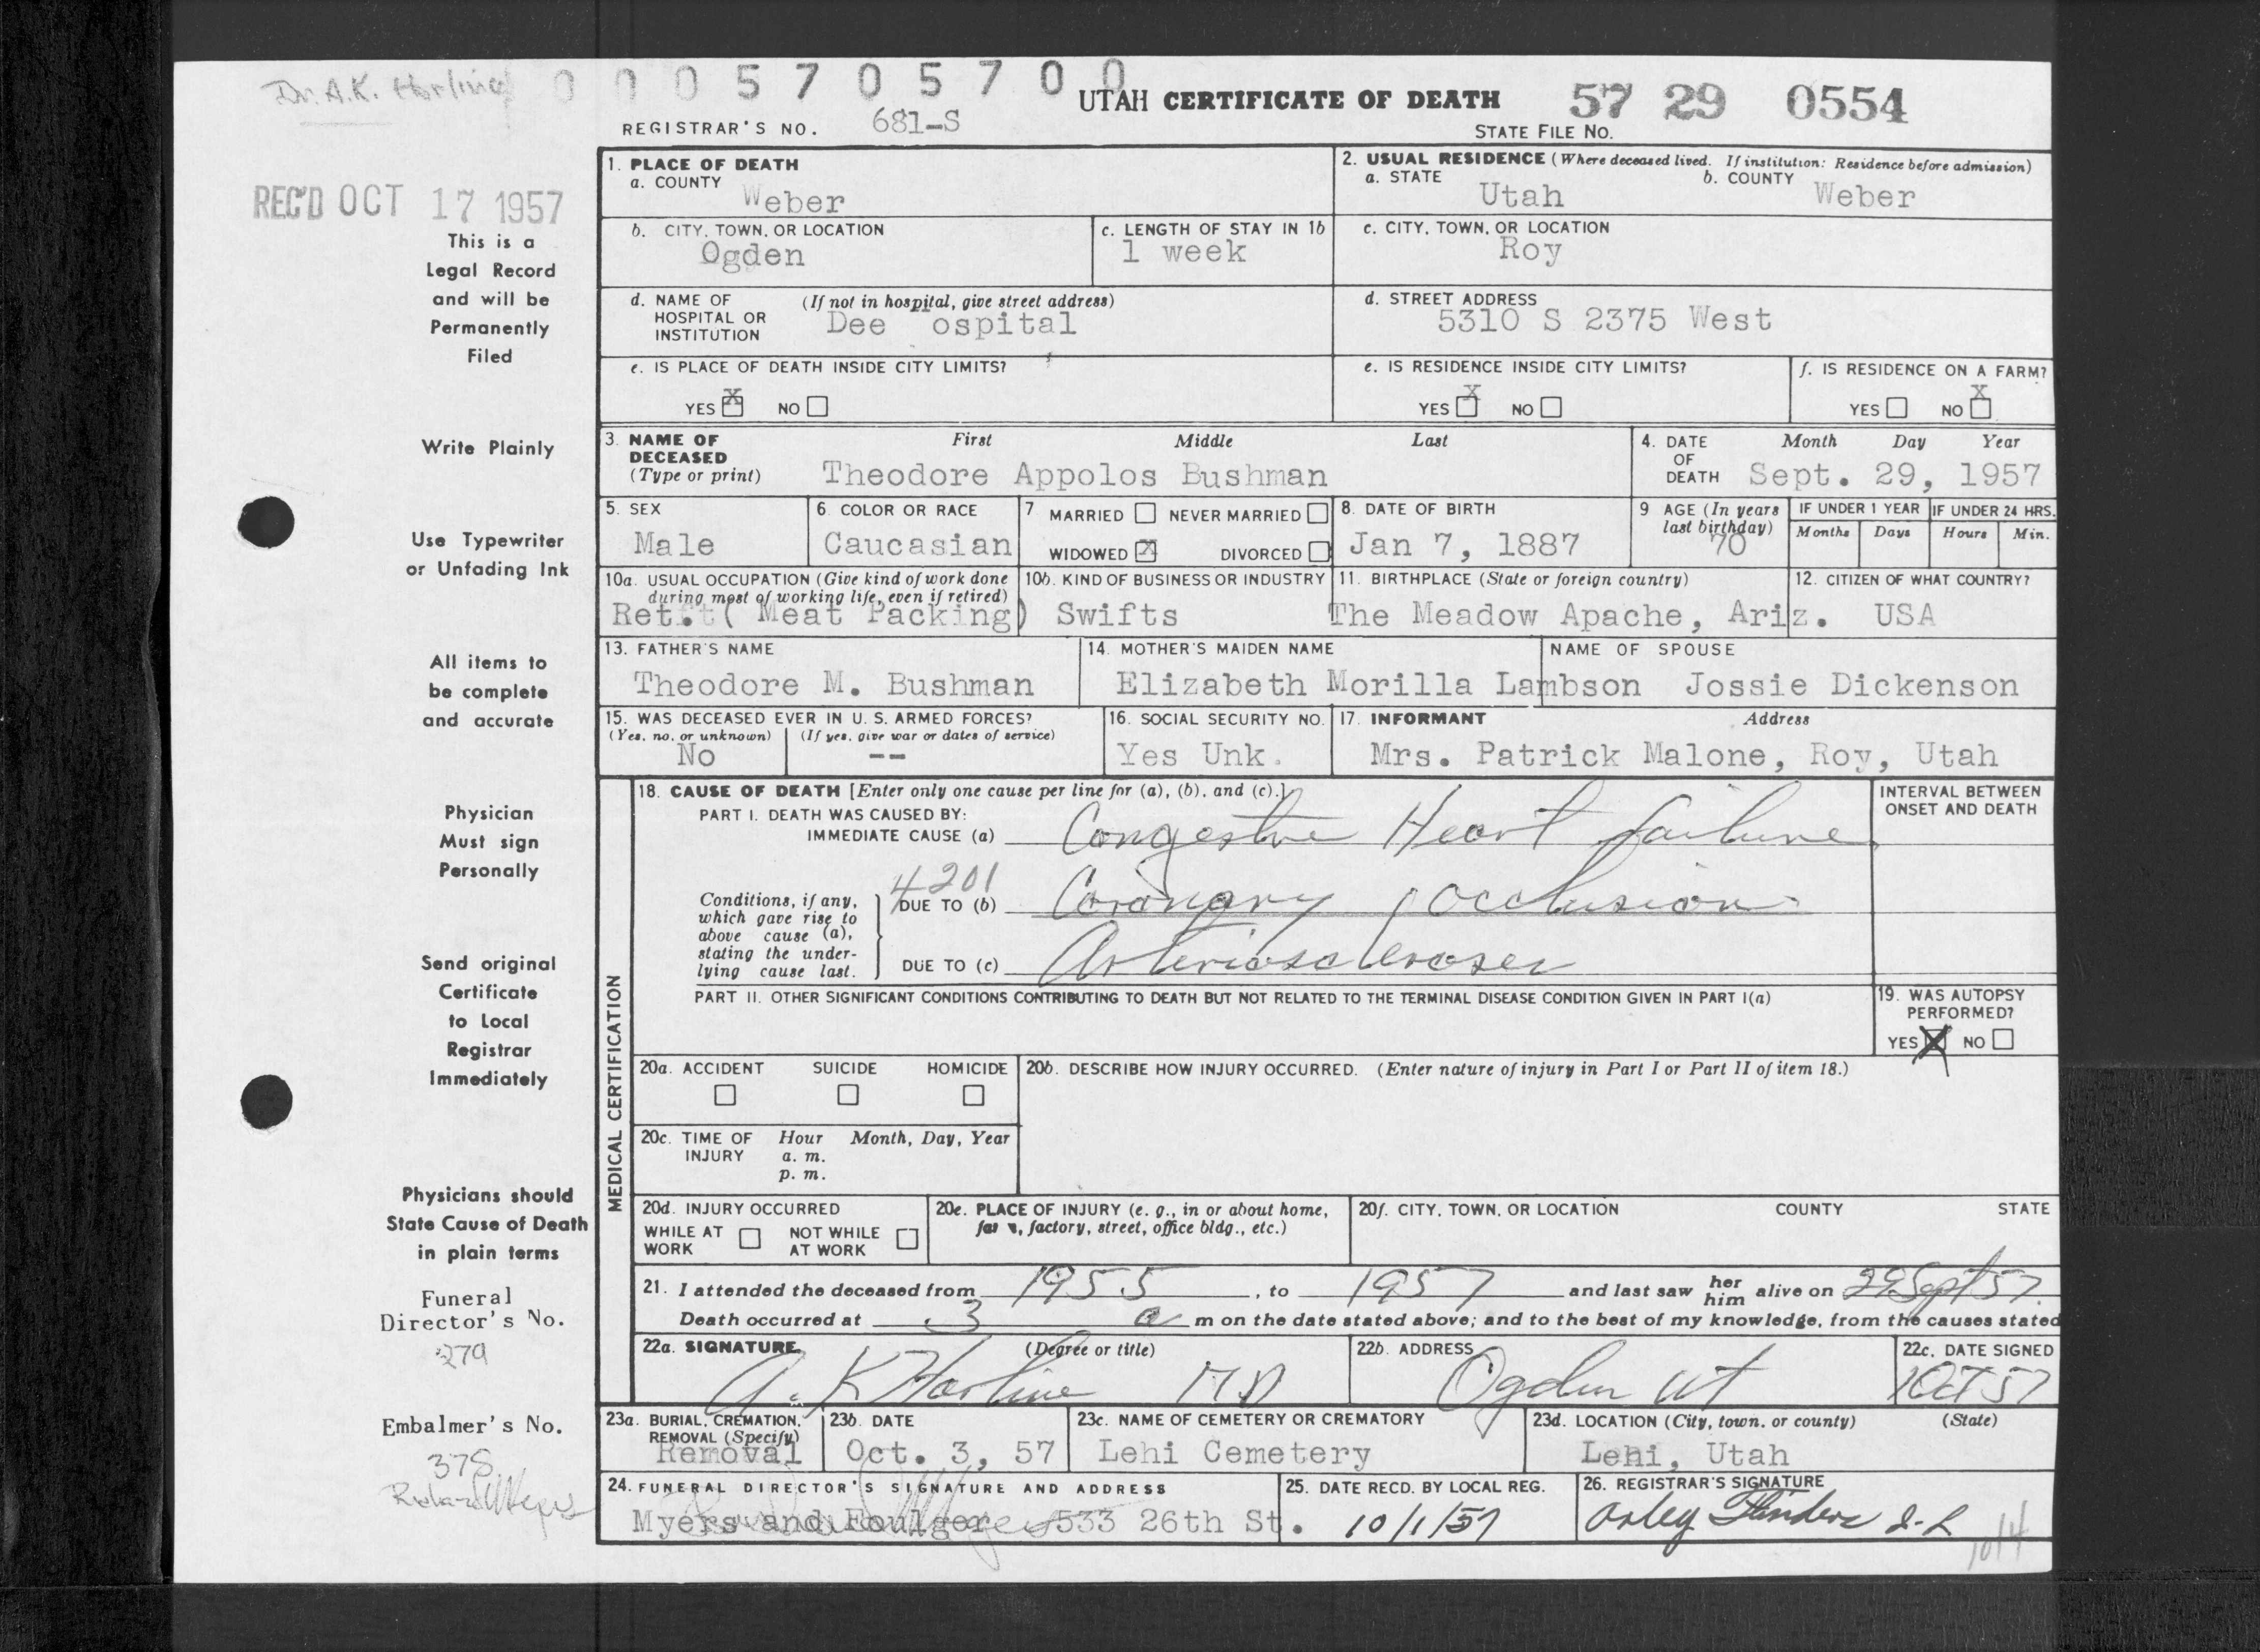 Dr. A.K. Harline
0 0 0 5 7 0 5 7 0 0
UTAH CERTIFICATE OF DEATH 57 29 0554
REGISTRAR'S NO. 681-S
STATE FILE NO.
REC'D OCT 17 1957
This is a
Legal Record
and will be
Permanently
Filed
Write Plainly
Use Typewriter
or Unfading Ink
All items to
be complete
and accurate
Physician
Must sign
Personally
Send original
Certificate
to Local
Registrar
Immediately
Physicians should
State Cause of Death
in plain terms
Funeral
Director's No.
279
Embalmer's No.
378
1. PLACE OF DEATH
a. COUNTY
Weber
2. USUAL RESIDENCE (Where deceased lived. If institution: Residence before admission)
a. STATE Utah b. COUNTY Weber
b. CITY, TOWN, OR LOCATION
Ogden
c. LENGTH OF STAY IN 1b
1 week
c. CITY, TOWN, OR LOCATION
Roy
d. NAME OF HOSPITAL OR INSTITUTION (If not in hospital, give street address)
Dee ospital
d. STREET ADDRESS
5310 S 2375 West
e. IS PLACE OF DEATH INSIDE CITY LIMITS?
YES X NO
e. IS RESIDENCE INSIDE CITY LIMITS?
YES X NO
f. IS RESIDENCE ON A FARM?
YES NO X
3. NAME OF DECEASED (Type or print)
First Middle Last
Theodore Appolos Bushman
4. DATE OF DEATH
Month Day Year
Sept. 29, 1957
5. SEX
Male
6. COLOR OR RACE
Caucasian
7 MARRIED NEVER MARRIED
WIDOWED X DIVORCED
8. DATE OF BIRTH
Jan 7, 1887
9 AGE (In years last birthday)
70
IF UNDER 1 YEAR
Months Days
IF UNDER 24 HRS.
Hours Min.
10a. USUAL OCCUPATION (Give kind of work done
during most of working life, even if retired)
Ret. ( Meat Packing)
10b. KIND OF BUSINESS OR INDUSTRY
Swifts
11. BIRTHPLACE (State or foreign country)
The Meadow Apache, Ariz.
12. CITIZEN OF WHAT COUNTRY?
USA
13. FATHER'S NAME
Theodore M. Bushman
14. MOTHER'S MAIDEN NAME
Elizabeth Morilla Lambson
NAME OF SPOUSE
Jossie Dickenson
15. WAS DECEASED EVER IN U. S. ARMED FORCES?
(Yes, no, or unknown) (If yes, give war or dates of service)
No --
16. SOCIAL SECURITY NO.
Yes Unk.
17. INFORMANT Address
Mrs. Patrick Malone, Roy, Utah
MEDICAL CERTIFICATION
18. CAUSE OF DEATH [Enter only one cause per line for (a), (b), and (c).]
INTERVAL BETWEEN
ONSET AND DEATH
PART I. DEATH WAS CAUSED BY:
IMMEDIATE CAUSE (a) Congestive Heart failure
4201
Conditions, if any,
which gave rise to
above cause (a),
stating the under-
lying cause last.
DUE TO (b) Coronary occlusion
DUE TO (c) Arterioscleroses
PART II. OTHER SIGNIFICANT CONDITIONS CONTRIBUTING TO DEATH BUT NOT RELATED TO THE TERMINAL DISEASE CONDITION GIVEN IN PART I(a)
19. WAS AUTOPSY
PERFORMED?
YES X NO
20a. ACCIDENT SUICIDE HOMICIDE
20b. DESCRIBE HOW INJURY OCCURRED. (Enter nature of injury in Part I or Part II of item 18.)
20c. TIME OF INJURY Hour Month, Day, Year
a. m.
p. m.
20d. INJURY OCCURRED
WHILE AT WORK NOT WHILE AT WORK
20e. PLACE OF INJURY (e. g., in or about home,
factory, street, office bldg., etc.)
20f. CITY, TOWN, OR LOCATION COUNTY STATE
21. I attended the deceased from 1955, to 1957 and last saw her him alive on 29 Sept 57.
Death occurred at 3 a m on the date stated above; and to the best of my knowledge, from the causes stated
22a. SIGNATURE (Degree or title)
A. K Harline MD
22b. ADDRESS
Ogden Ut
22c. DATE SIGNED
1 Oct 57
23a. BURIAL, CREMATION,
REMOVAL (Specify)
Removal
23b. DATE
Oct. 3, 57
23c. NAME OF CEMETERY OR CREMATORY
Lehi Cemetery
23d. LOCATION (City, town, or county) (State)
Lehi, Utah
24. FUNERAL DIRECTOR'S SIGNATURE AND ADDRESS
Myers and Foulger 533 26th St.
25. DATE RECD. BY LOCAL REG.
10/1/57
26. REGISTRAR'S SIGNATURE